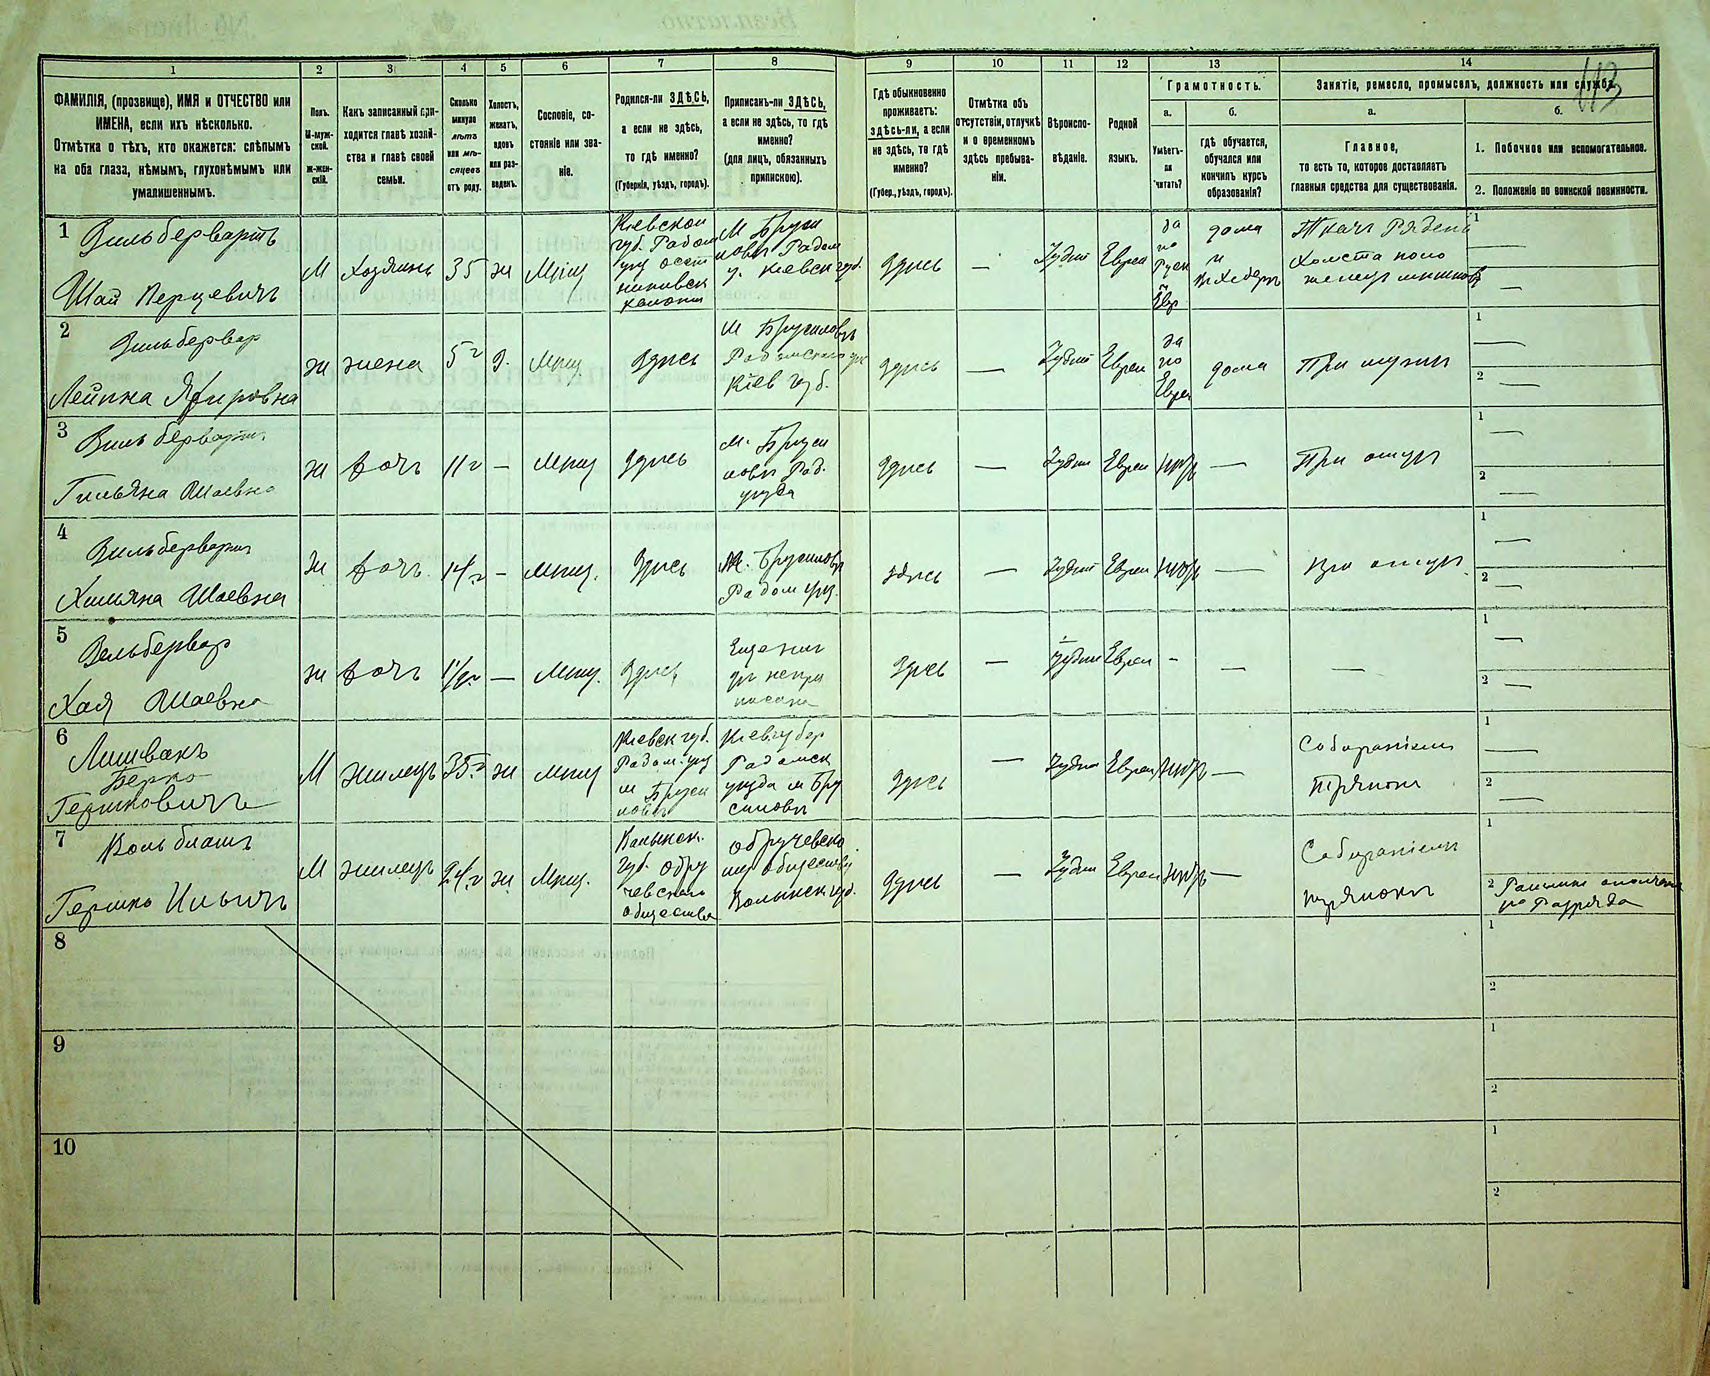 113
1 2 3 4 5 6 7 8 9 10 11 12 13 14
ФАМИЛІЯ, (прозвище), ИМЯ и ОТЧЕСТВО или
ИМЕНА, если ихъ нѣсколько.
Отмѣтка о тѣхъ, кто окажется: слѣпымъ
на оба глаза, нѣмымъ, глухонѣмымъ или
умалишеннымъ.
Полъ.
М-муж-
ской.
Ж-жен-
скій.
Какъ записанный при-
ходится главѣ хозяй-
ства и главѣ своей
семьи.
Сколько
минуло
лѣтъ
или мѣ-
сяцевъ
отъ роду.
Холостъ,
женатъ,
вдовъ
или раз-
веденъ.
Сословіе, со-
стояніе или зва-
ніе.
Родился-ли ЗДѢСЬ,
а если не здѣсь,
то гдѣ именно?
(Губернія, уѣздъ, городъ).
Приписанъ-ли ЗДѢСЬ,
а если не здѣсь, то гдѣ
именно?
(для лицъ, обязанныхъ
припискою).
Гдѣ обыкновенно
проживаетъ:
здѣсь-ли, а если
не здѣсь, то гдѣ
именно?
(Губер., уѣздъ, городъ).
Отмѣтка объ
отсутствіи, отлучкѣ
и о временномъ
здѣсь пребыва-
ніи.
Вѣроиспо-
вѣданіе.
Родной
языкъ.
Грамотность.
а.
Умѣетъ-
ли
читать?
б.
гдѣ обучается,
обучался или
кончилъ курсъ
образованія?
Занятіе, ремесло, промыселъ, должность или служба.
а.
Главное,
то есть то, которое доставляетъ
главныя средства для существованія.
б.
1. Побочное или вспомогательное.
2. Положеніе по воинской повинности.
1
Вильберваргъ
Шая Перцевичъ
М
Хозяинъ
35
ж
Мѣщ
Кіевской
губ. Радом
уѣз
колоніи
М Бруси
ловъ Радом
у. Кіевск губ.
Здѣсь
—
Іудей
Еврей
да
по
Руск
и
Евр
дома
и
въ Хедерѣ
Ткачъ Рядень
Холста
1 —
2 —
2
Вильбервар
Лейпка
ж
жена
г
Мѣщ
Здѣсь
М Брусиловъ
Радомскаго
Кіев губ.
Здѣсь
—
Іудей
Еврей
да
по
Еврей
дома
При мужѣ
1 —
2 —
3
Вильберварг
Шаевна
ж
дочь
11 г
—
Мѣщ
Здѣсь
М. Бруси
ловъ Рад.
уѣзда
Здѣсь
—
Іудей
Еврей
нѣтъ
—
При отцѣ
1 —
2 —
4
Вильберварг
Шаевна
ж
дочь
—
мѣщ.
Здѣсь
М. Брусиловъ
Радом уѣз.
здѣсь
—
Іудей
Еврей
нѣтъ
—
При отцѣ
1 —
2 —
5
Вельбервар
Хая Шаевна
ж
дочь
—
Мѣщ.
Здѣсь
Еще ни
гдѣ непри
писана
Здѣсь
—
Іудей
Еврей
-
—
—
1 —
2 —
6
Лишвакъ
Берко
Гершковичъ
М
жилецъ
35 г
ж
мѣщ
Кіевск губ.
Радом. уѣз
м Бруси
ловъ
Кіев губер
Радомск
уѣзда м Бру
силовъ
Здѣсь
—
Іудей
Еврей
нѣтъ
—
Собираніем
тряпокъ
1 —
2 —
7
Гершко
М
жилецъ
24 г
ж
Мѣщ.
Волынск.
губ. Овру
чевскаго
общества
Овручевско
му обществу
Волынск губ.
Здѣсь
—
Іудей
Еврей
нѣтъ
—
Собираніем
тряпокъ
1
2 Ратникъ ополченія
го Разряда
8
1
2
9
1
2
10
1
2